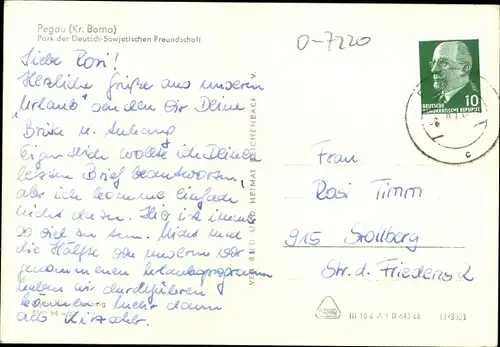 Pegau (Kr. Borna)
Park der Deutsch-Sowjetischen Freundschaft
O-7220
Liebe Rosi!
Herzliche Grüße aus unserem
"Urlaub" senden Dir Deine
u. Anhang
Eigentlich wollte ich Deinen
letzten Brief beantworten,
aber ich komme einfach
nicht dazu. Hier ist immer
so viel zu tun. Nicht mal
die Hälfte von unserem vor-
genommenen Urlaubsprogramm
haben wir durchführen
können.
aus
VEB BILD UND HEIMAT REICHENBACH I. V.
10
DEUTSCHE
DEMOKRATISCHE REPUBLIK
c
Frau
Rosi Timm
915 Stollberg
Str. d. Friedens 2
III 18 6 A 1 B 643 68